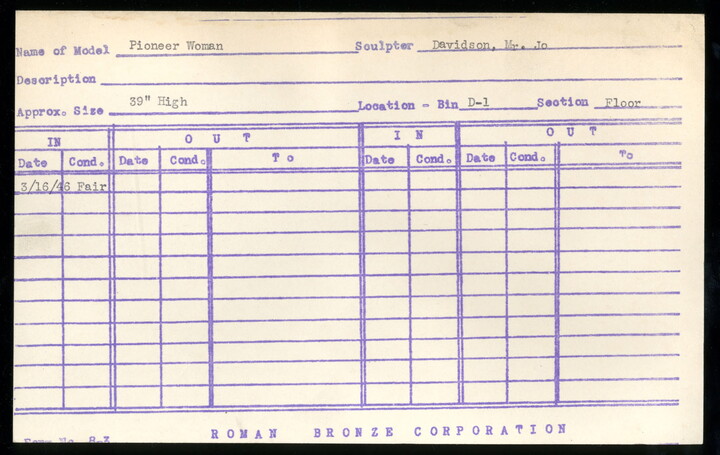 Name of Model Pioneer Woman Sculpter Davidson, Mr. Jo
Description
Approx. Size 39" High Location - Bin D-1 Section Floor
IN O U T I N O U T
Date Cond. Date Cond. To Date Cond. Date Cond. To
3/16/46 Fair
Form No. 8-3
ROMAN BRONZE CORPORATION